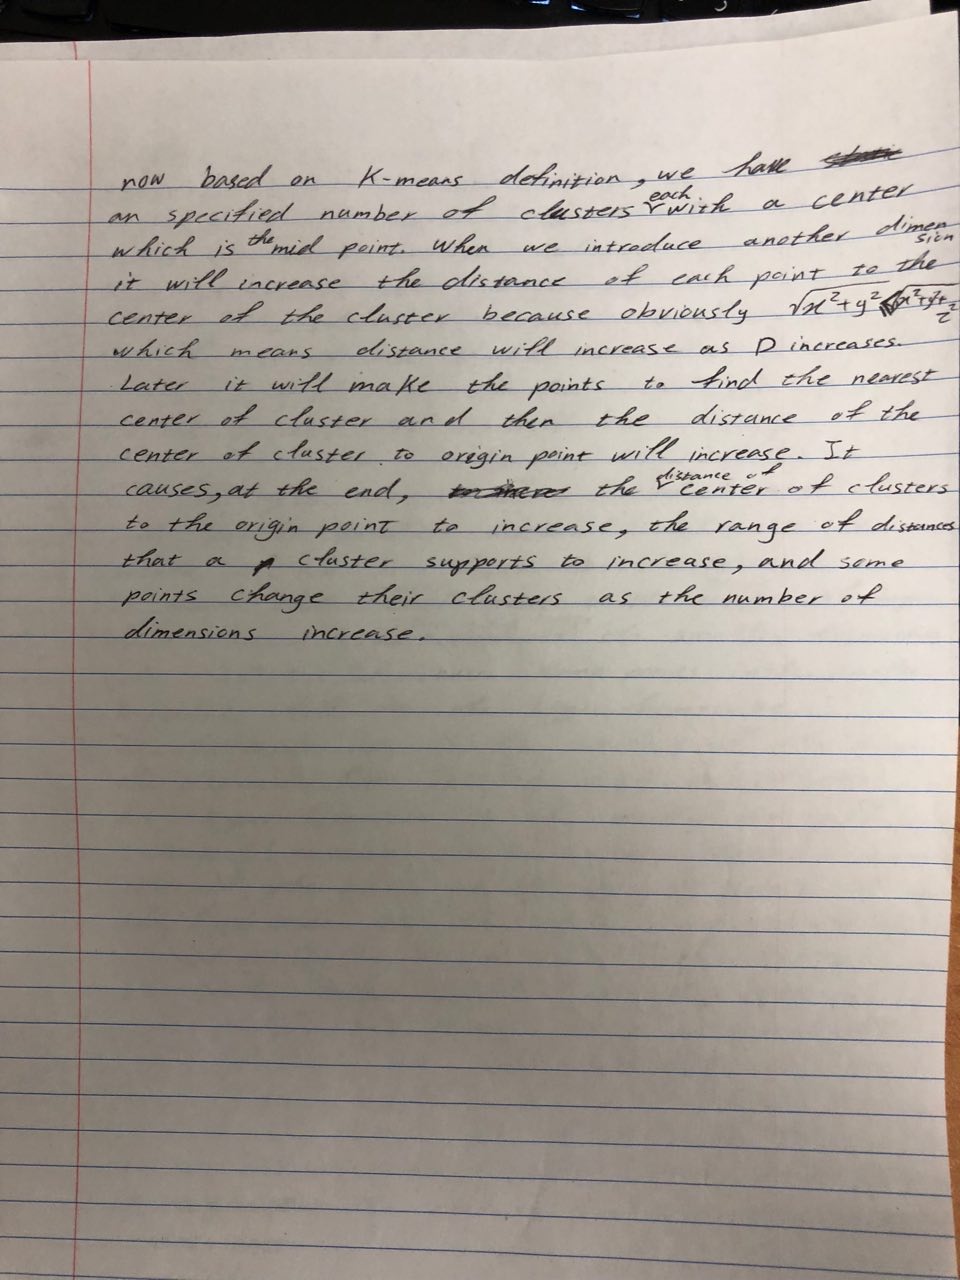 now based on K-means definition, we have
an specified number of clusters each with a center
which is the mid point. When we introduce another dimension
it will increase the distance of each point to the
center of the cluster because obviously √x²+y² < √x²+y²+z²
which means distance will increase as D increases.
Later it will make the points to find the nearest
center of cluster and then the distance of the
center of cluster to origin point will increase. It
causes, at the end, the distance of center of clusters
to the origin point to increase, the range of distances
that a cluster supports to increase, and some
points change their clusters as the number of
dimensions increase.